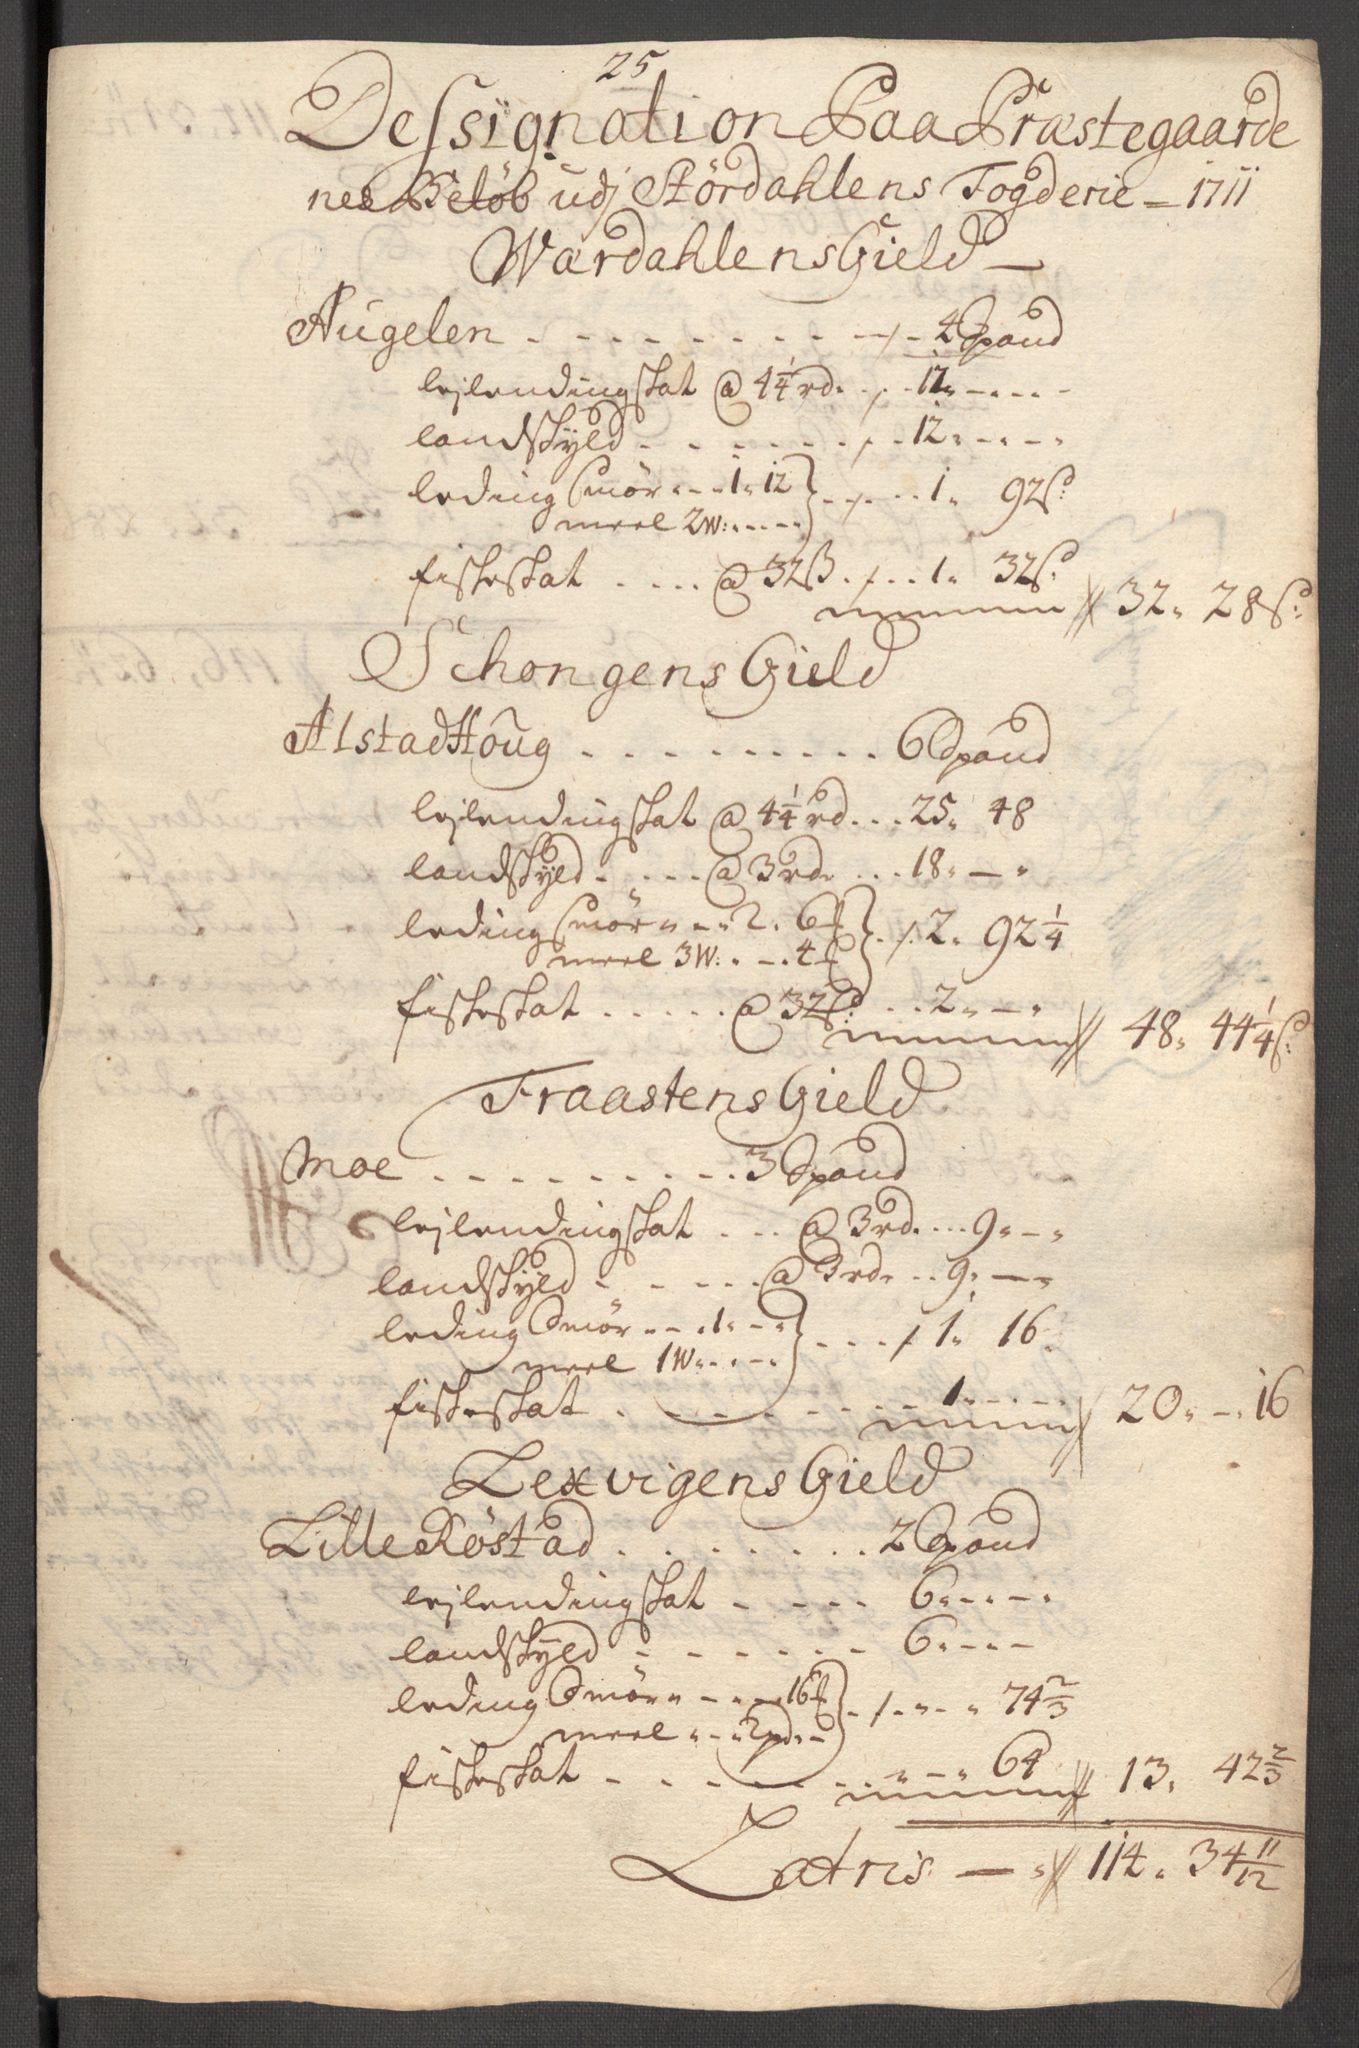 25
Dessignation Paa Præstegaarde
nes Beløb udj Størdahlens Fogderie - 1711
Værdahlens Gield
Augelen . . . . . . . . 4 Spand
lejlendingskat @ 4 1/4 rd. . . 17 " - - -
landskyld . . . . . . . 12 " - - -
leding Smör . . . 1 " 12 } . . . 1 " 92 s:
meel 2 W: . . . .
fiskeskat . . . . @ 32 ß . . . 1 " 32 s: // 32 " 28 s:
Schongens Gield
Alstadhoug . . . . . . . . . 6 Spand
lejlendingskat @ 4 1/4 rd . . . 25 " 48
landskyld . . . . @ 3 rd . . . 18 " - "
leding Smör " - " 2 " 6 } . . 2 " 92 1/4
meel 3 W: . - . 4
fiskeskat . . . . . @ 32 s: . . 2 " - " // 48 " 44 1/4 s:
Fraastens Gield
Moe . . . . . . . . . 3 Spand
lejlendingskat . . . @ 3 rd . . . 9 " - "
landskyld . . . . . @ 3 rd . . 9 " - "
leding Smör " - - 1 " - " } . . . 1 " 16
meel 1 W " . . .
fiskeskat . . . . . . . . 1 " . . . . // 20 " - " 16
Lexvigens Gield
Lille Röstad . . . . . . . 2 Spand
lejlendingskat . . . . 6 " - " - "
landskyld . . . . . . . 6 " - - -
leding Smör " - - - 16 } . . " - " 74 2/3
meel " - " 2 pd " -
fiskeskat . . . . . . . " - " 64 // 13 " 42 2/3
Latris - " // 114 " 34 11/12